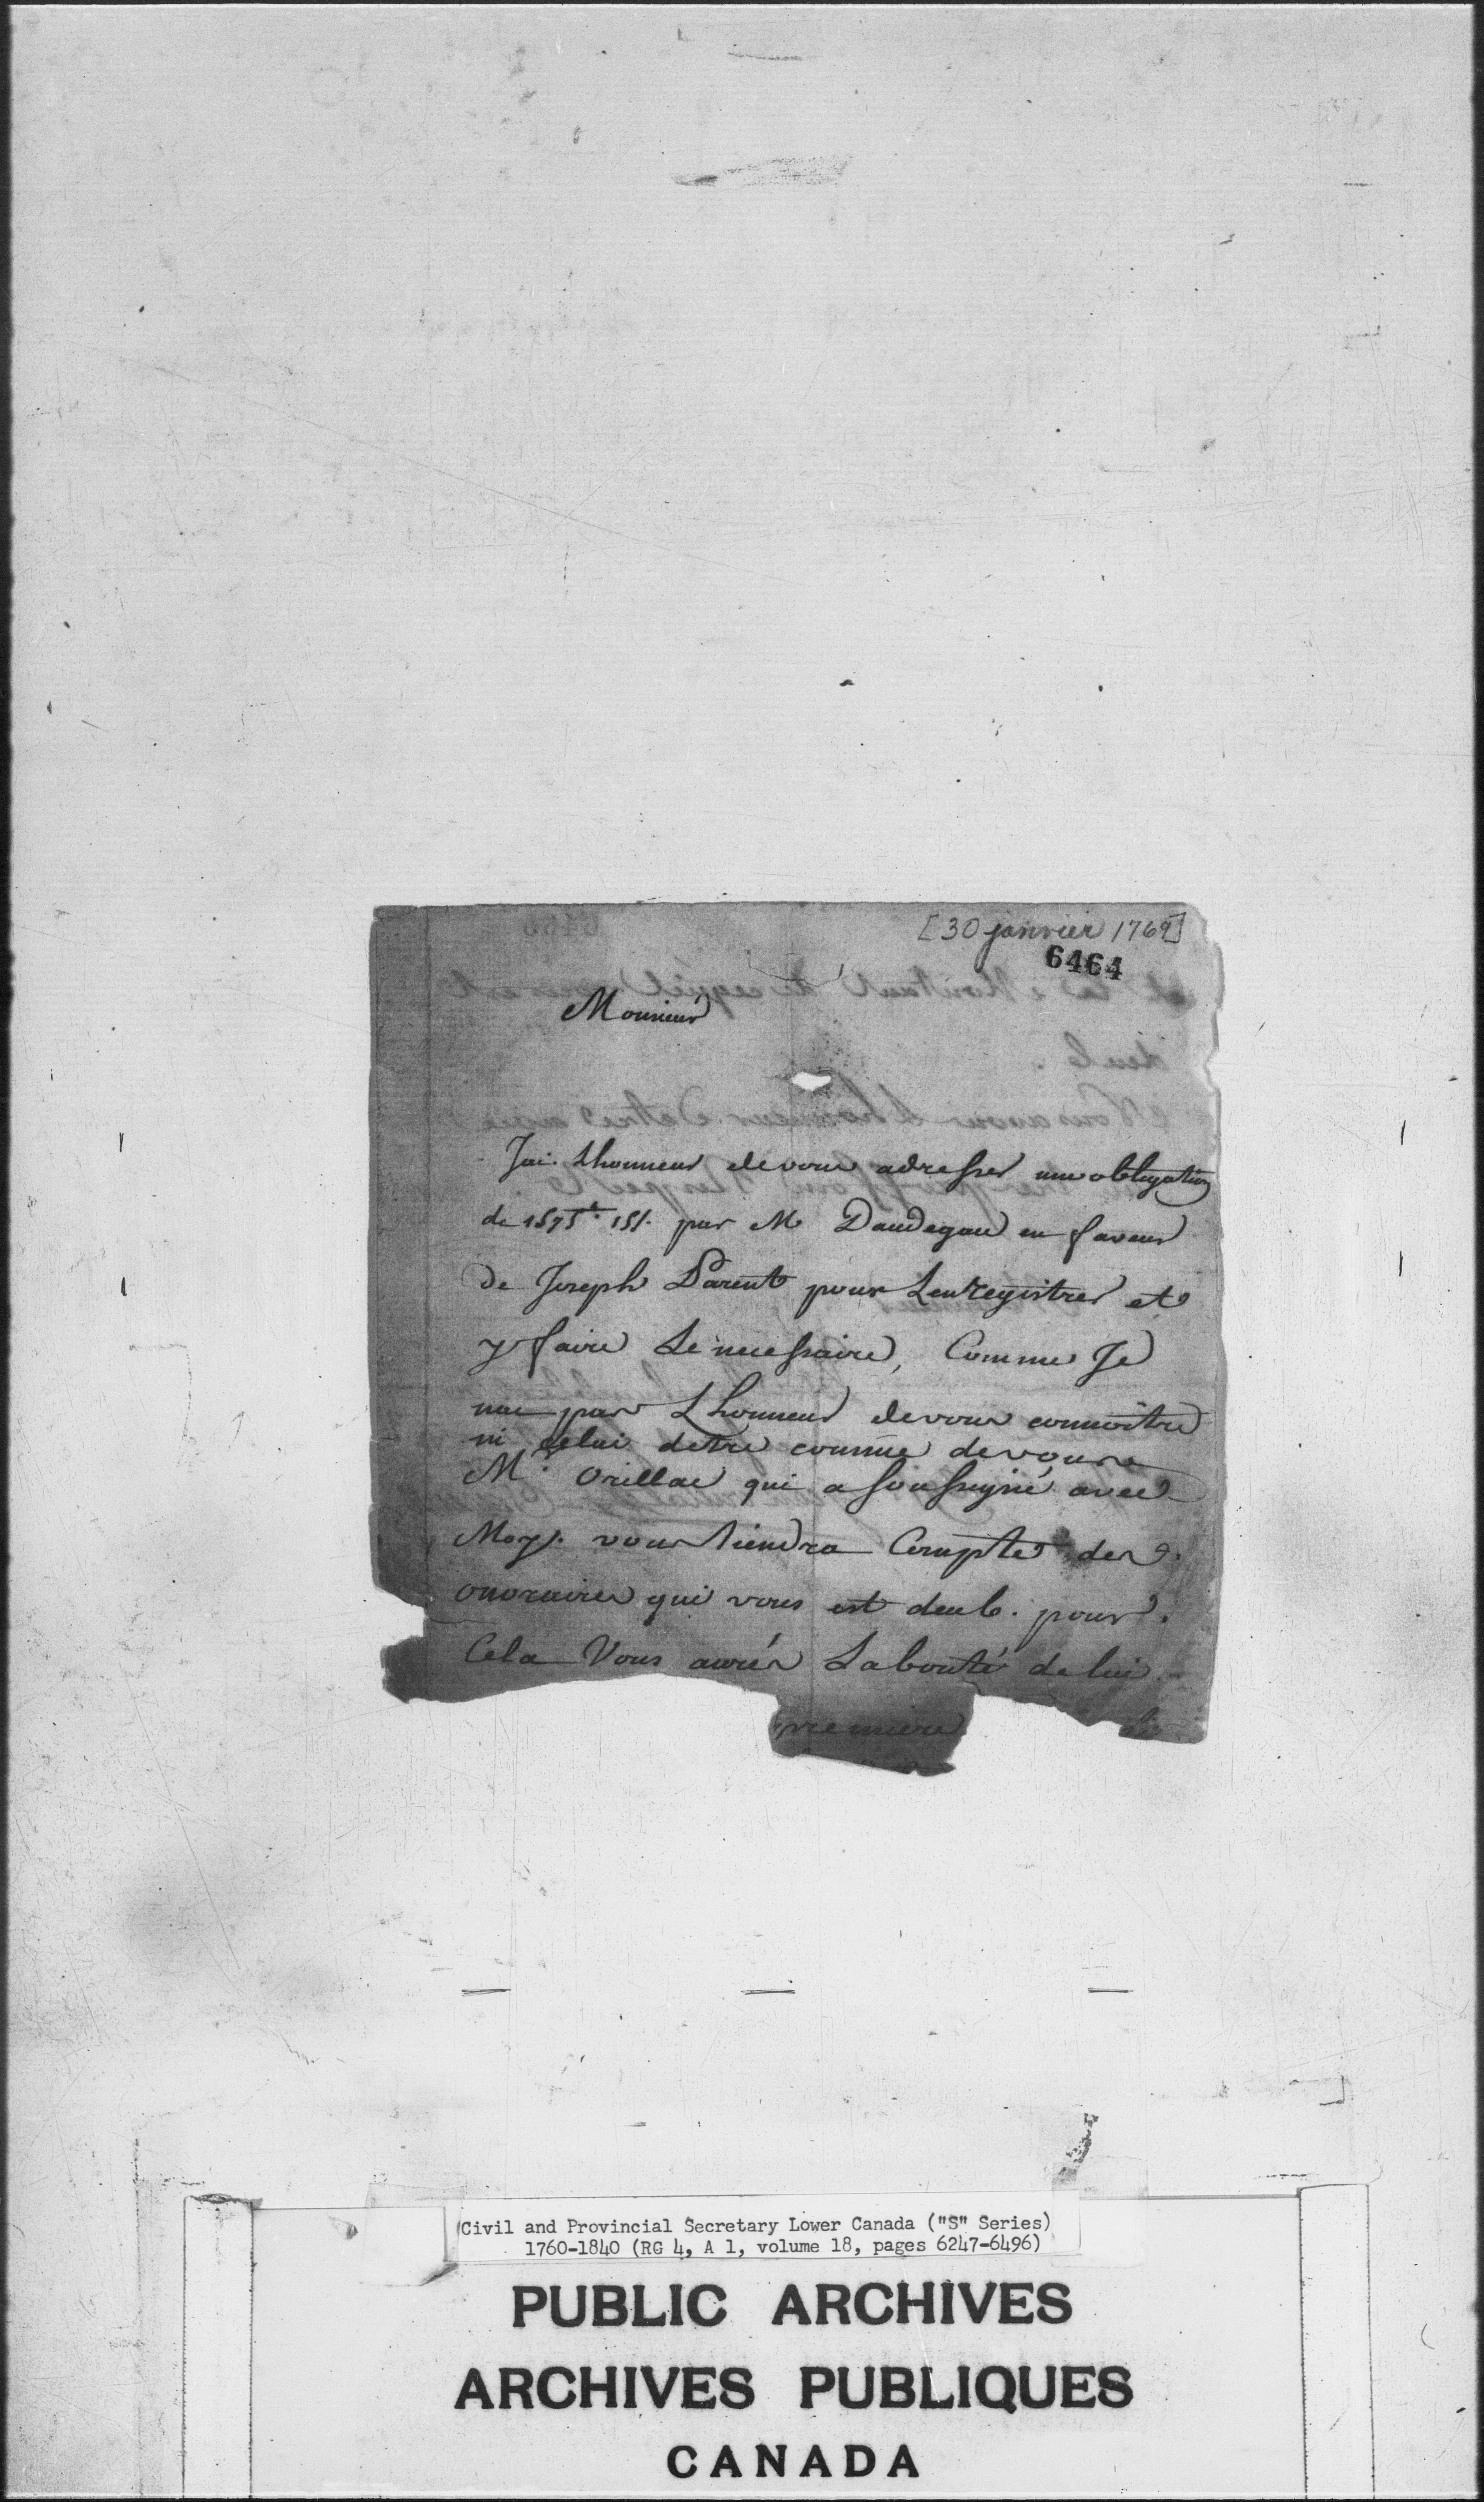 [30 janvier 1769]
6464
Monsieur
Jai Lhonneur devous adresser une obligation
de 1575 15s. par M Daudegau en faveur
de Joseph Parent pour Lenregistrer et
y faire Le necessaire, Comme Je
nai pas Lhonneur devous connoitre
ni celui detre connue devous
Mr. Orillac qui a soussigné avec
Moy. vous tiendra Compte des
onoraires qui vous est deub. pour
Cela Vous aurés Labonté de lui
premiere
Civil and Provincial Secretary Lower Canada ("S" Series)
1760-1840 (RG 4, A 1, volume 18, pages 6247-6496)
PUBLIC ARCHIVES
ARCHIVES PUBLIQUES
CANADA